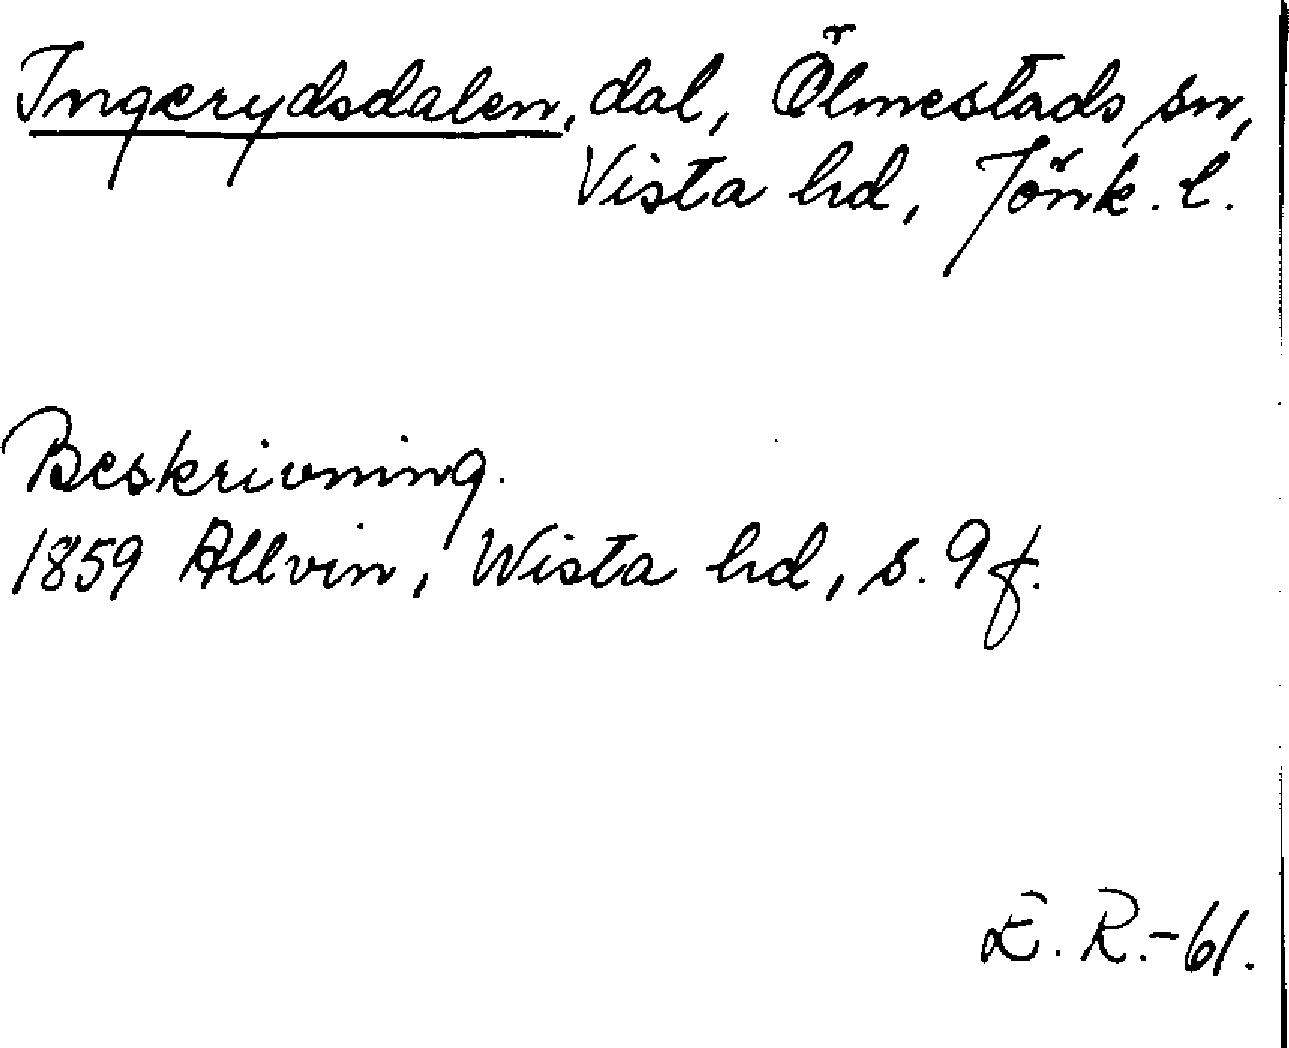 Ingerydsdalen, dal, Ölmestads sn,
Vista hd, Jönk. l.
Beskrivning.
1859 Allvin, Wista hd, s. 9 f.
E. R. - 61.